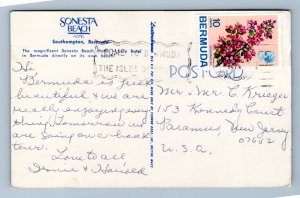 SONESTA
BEACH
HOTEL
Southampton, Bermuda
The magnificent Sonesta Beach Hotel, luxury hotel
in Bermuda directly on its own beach.
BERMUDA
10
THE ISLES
POSTCARD
Hi
Bermuda is just
beautiful & we are
really enjoying every
thing. Tomorrow we
are going on a boat
tour.
Love to all
Irvine & Harold
Mr. & Mrs. C. Krieger
153 Kennedy Court
Paramus, New Jersey
07652
U.S.A.